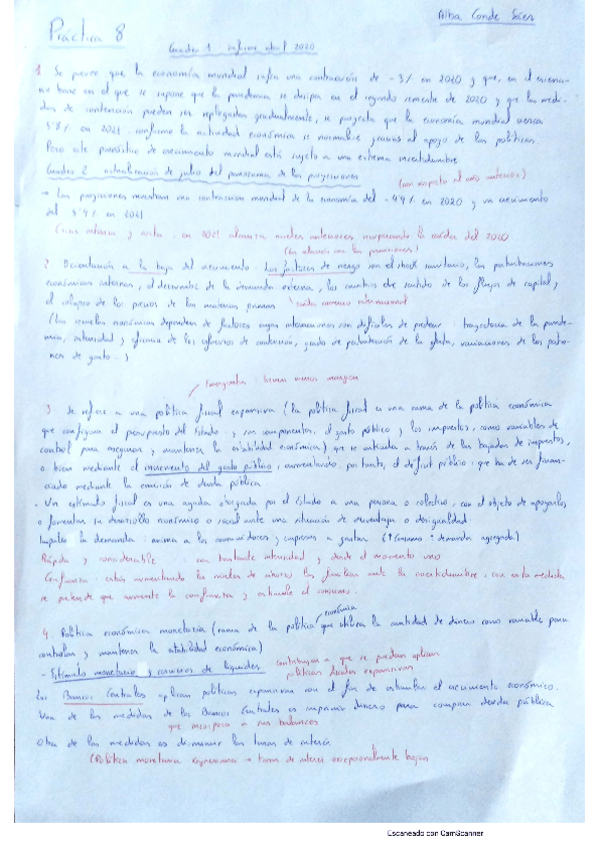 Alba Conde Sáez
Práctica 8
Cuadro 1 informe abril 2020
1 Se prevé que la economía mundial sufra una contracción de -3% en 2020 y que, en el escena-
rio base en el que se supone que la pandemia se disipa en el segundo semestre de 2020 y que las medi-
das de contención pueden ser replegadas gradualmente, se proyecta que la economía mundial crezca
5'8% en 2021, conforme la actividad económica se normalice gracias al apoyo de las políticas.
Pero este pronóstico de crecimiento mundial está sujeto a una extrema incertidumbre
Cuadro 2 actualización de julio del panorama de las proyecciones
(con respecto al año anterior)
→ Las proyecciones muestran una contracción mundial de la economía del -4'9% en 2020 y un crecimiento
del 5'4% en 2021
en 2021 alcanza niveles anteriores recuperando la caída del 2020
(en relación con las previsiones)
2. Orientación a la baja del crecimiento. Los factores de riesgo son el shock sanitario, las perturbaciones
económicas internas, el derrumbe de la demanda externa, los cambios de sentido de los flujos de capital,
y el colapso de los precios de las materias primas
caída comercio internacional
(Los resultados económicos dependen de factores cuyas interacciones son difíciles de predecir: trayectoria de la pande-
mia, intensidad y eficacia de los esfuerzos de contención, grado de perturbación de la oferta, variaciones de los patro-
nes de gasto...)
tienen menos margen
3 Se refiere a una política fiscal expansiva (la política fiscal es una rama de la política económica
que configura el presupuesto del Estado, y sus componentes, el gasto público y los impuestos, como variables de
control para asegurar y mantener la estabilidad económica) que se articula a través de las bajadas de impuestos,
o bien mediante el incremento del gasto público, aumentando, por tanto, el déficit público, que ha de ser finan-
ciado mediante la emisión de deuda pública
- Un estímulo fiscal es una ayuda otorgada por el Estado a una persona o colectivo, con el objeto de apoyarlos
o fomentar su desarrollo económico o social ante una situación de desventaja o desigualdad
Impulso la demanda: anima a los consumidores y empresas a gastar (↑consumo = demanda agregada)
Rápida y considerable: con bastante intensidad y desde el momento uno
Confianza: están aumentando los niveles de ahorro las familias ante la incertidumbre, con esta medida
se pretende que aumente la confianza y estimule el consumo.
4. Política económica monetaria (rama de la política económica que utiliza la cantidad de dinero como variable para
controlar y mantener la estabilidad económica)
- Estímulo monetario y servicios de liquidez
contribuyen a que se puedan aplicar
políticas fiscales expansivas
Los Bancos Centrales aplican políticas expansivas con el fin de estimular el crecimiento económico.
Una de las medidas de los Bancos Centrales es imprimir dinero para comprar deuda pública
que incorpora a sus balances
Otra de las medidas es disminuir las tasas de interés
(Política monetaria expansiva → tasas de interés excepcionalmente bajas
Escaneado con CamScanner